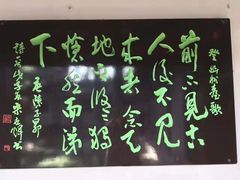 登幽州臺歌
前不見古
人後不見
来者念天
地之悠々獨
愴然而涕
下
陳子昂